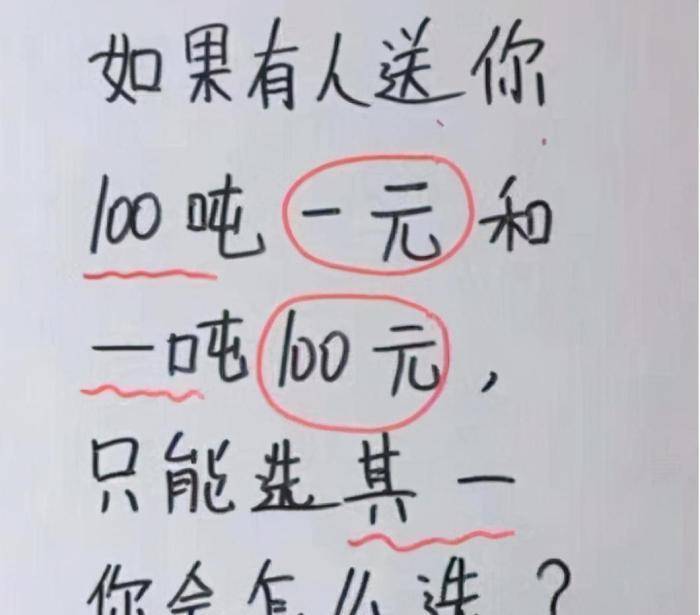 如果有人送你
100吨一元和
一吨100元，
只能选其一
你会怎么选？